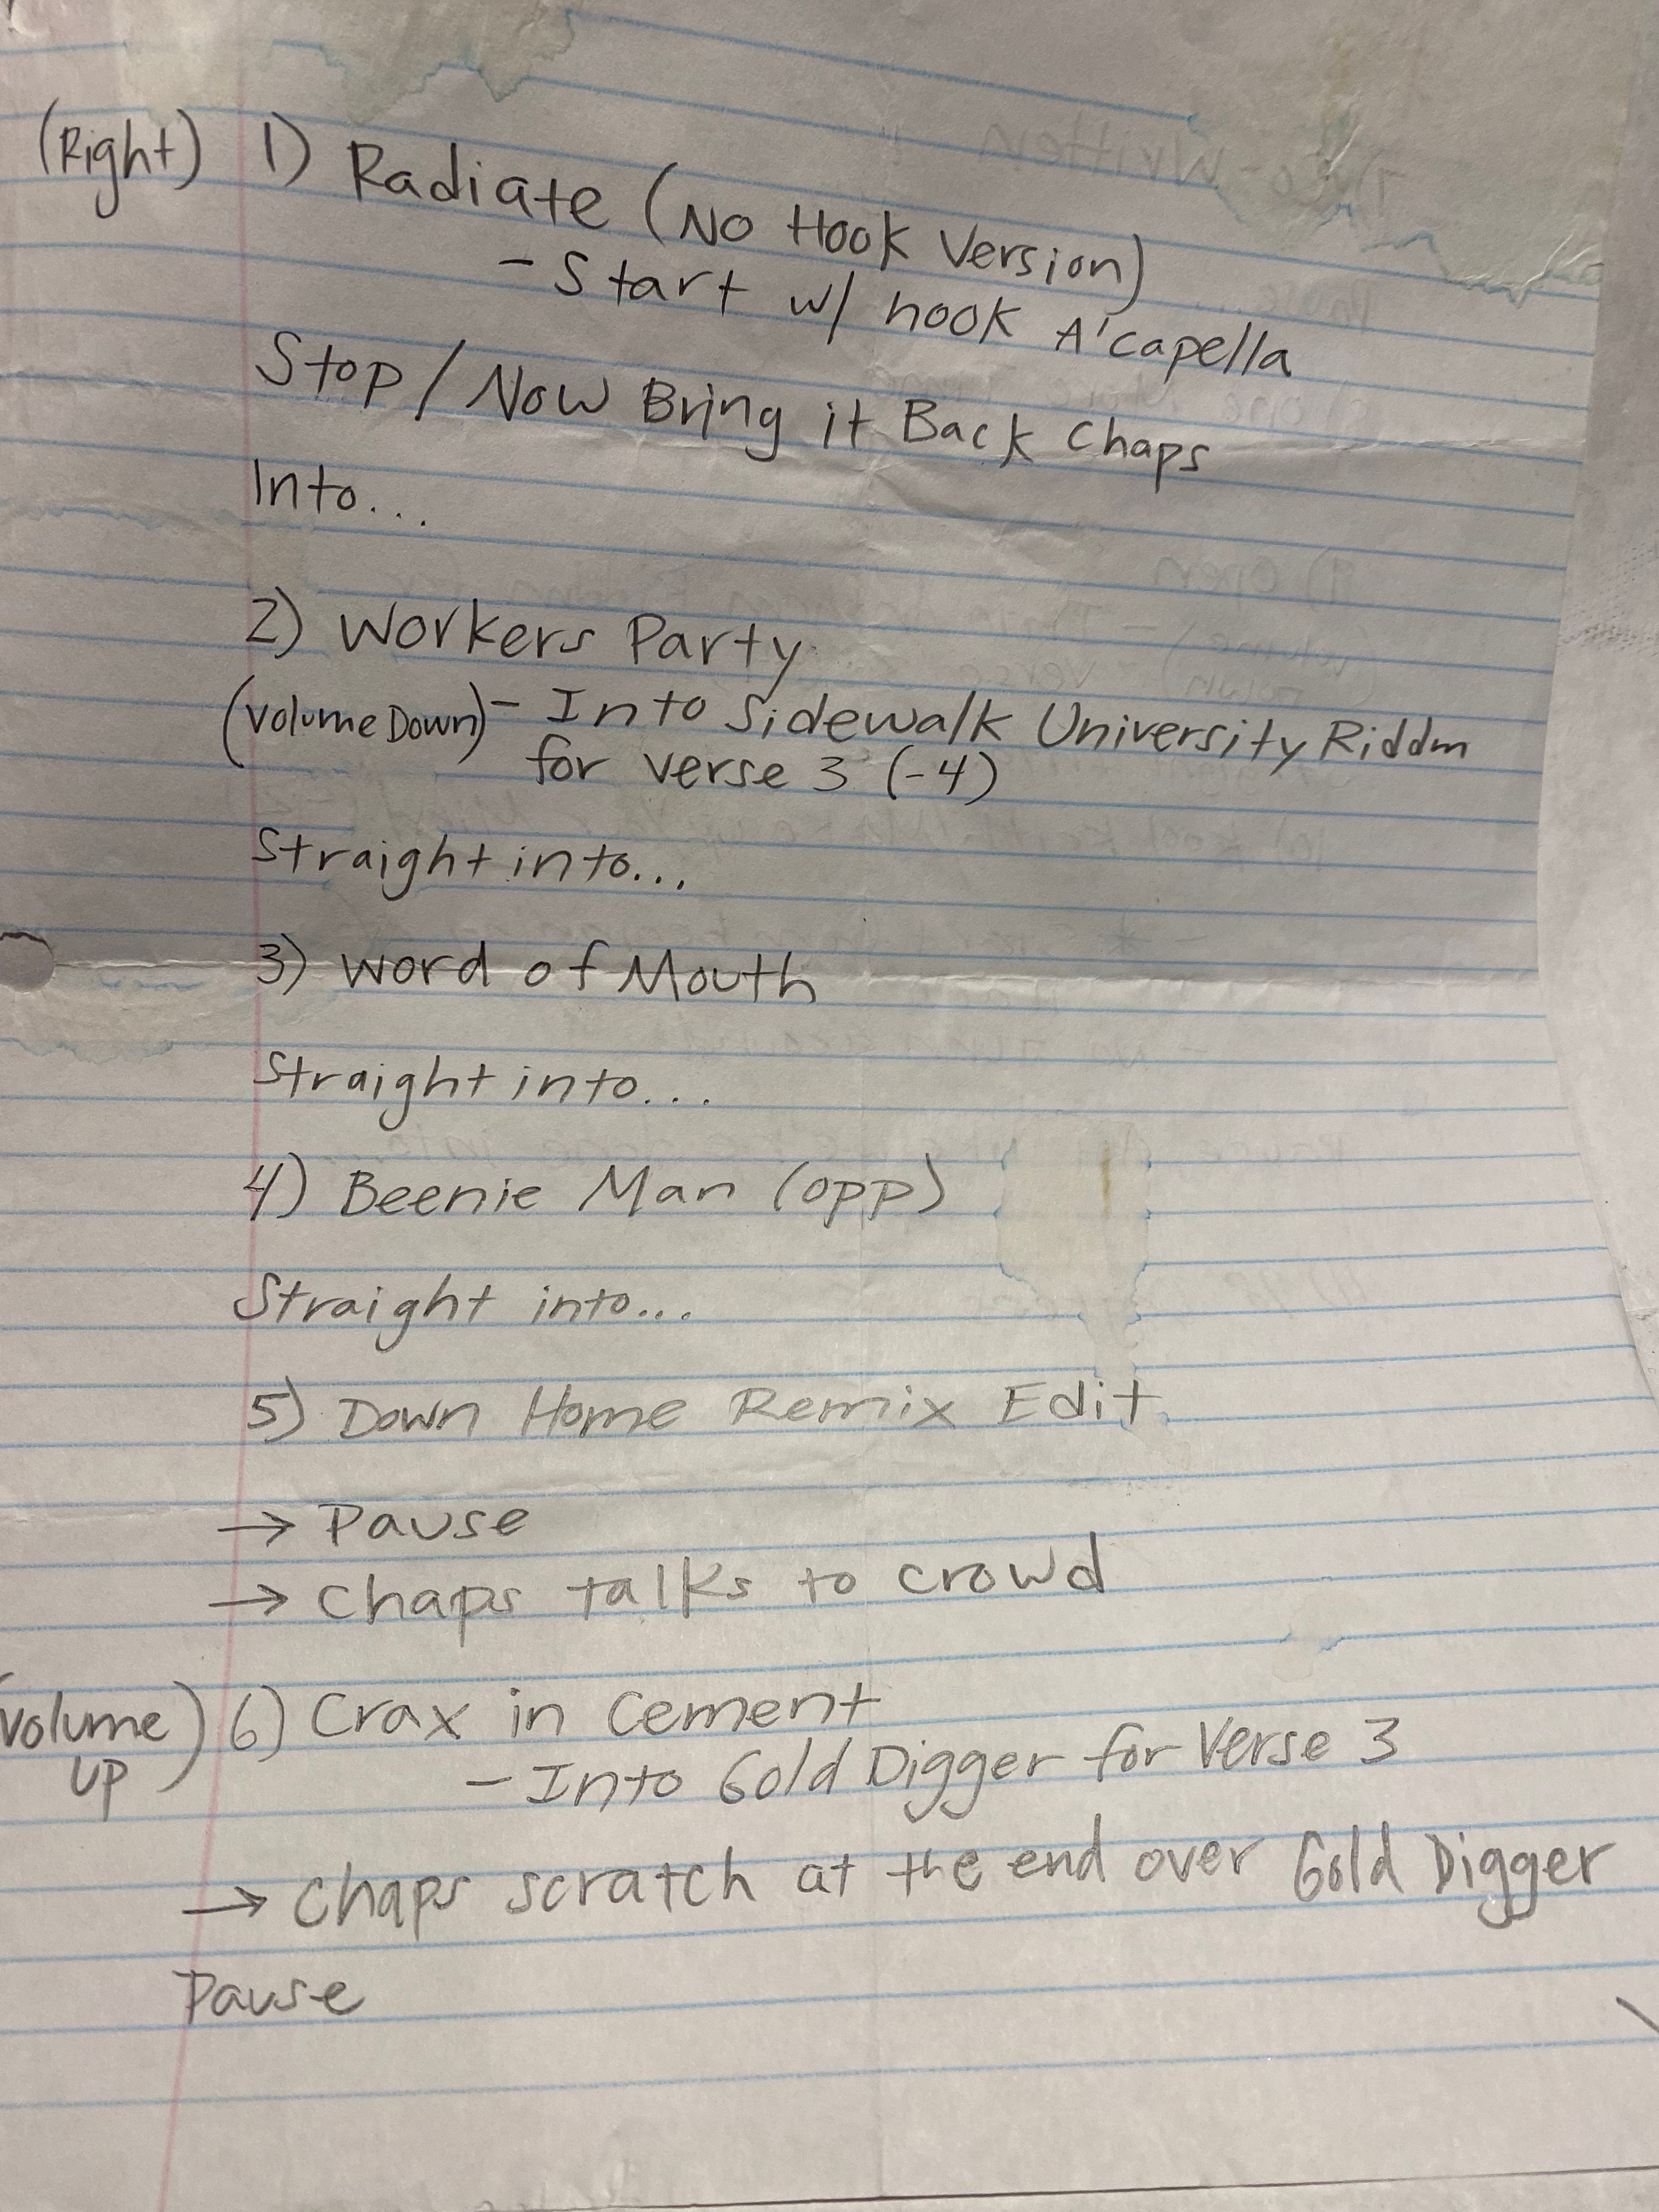 (Right) 1) Radiate (No Hook Version)
- Start w/ hook A'capella
Stop / Now Bring it Back Chaps
Into...
2) Workers Party
(Volume Down) - Into Sidewalk University Riddm
for verse 3 (-4)
Straight into...
3) Word of Mouth
Straight into...
4) Beenie Man (opp)
Straight into...
5) Down Home Remix Edit
→ Pause
→ Chaps talks to crowd
(Volume Up) 6) Crax in Cement
- Into Gold Digger for Verse 3
→ Chaps scratch at the end over Gold Digger
Pause